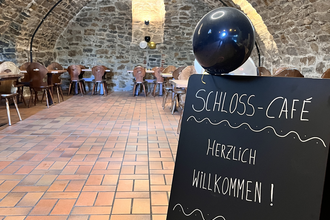 SCHLOSS-CAFÉ
HERZLICH
WILLKOMMEN!